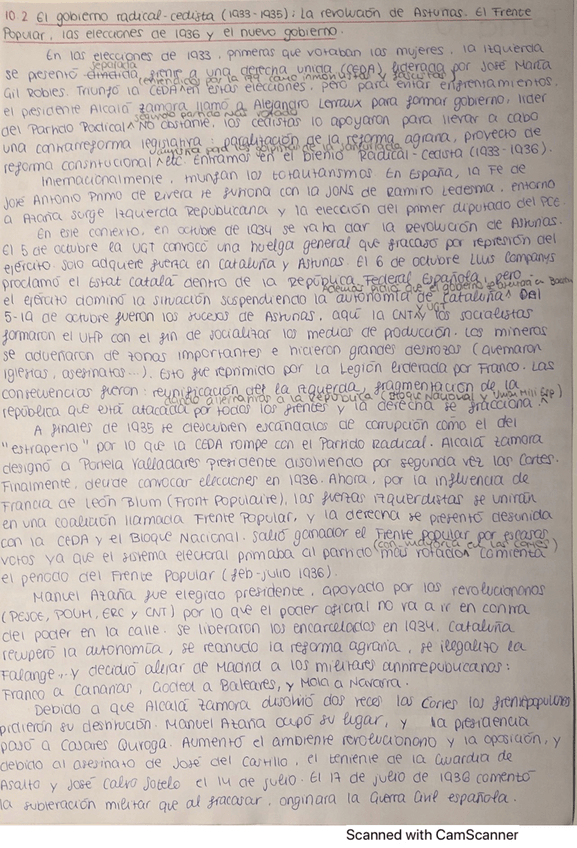 10.2 El gobierno radical-cedista (1933-1935): La revolución de Asturias. El Frente
Popular, las elecciones de 1936 y el nuevo gobierno.
En las elecciones de 1933, primeras que votaban las mujeres, la izquierda
separada
se presentó dividida, frente a una derecha unida (CEDA) liderada por José María
Gil Robles. Triunfó la CEDA en estas elecciones, pero para evitar enfrentamientos,
el presidente Alcalá Zamora llamó a Alejandro Lerroux para formar gobierno, líder
segundo partido más votado
del Partido Radical. No obstante, los cedistas lo apoyaron para llevar a cabo
una contrarreforma legislativa, paralización de la reforma agraria, proyecto de
reforma constitucional, etc. Entramos en el bienio Radical-cedista (1933-1936).
Internacionalmente, triunfan los totalitarismos. En España, la Fe de
José Antonio Primo de Rivera se fusiona con la JONS de Ramiro Ledesma, entorno
a Azaña surge Izquierda Republicana y la elección del primer diputado del PCE.
En este contexto, en octubre de 1934 se va ha dar la Revolución de Asturias.
El 5 de octubre la UGT convocó una huelga general que fracasó por represión del
ejército solo adquiere fuerza en Cataluña y Asturias. El 6 de octubre Lluis Companys
proclamó el Estat Catalá dentro de la República Federal Española, pero
el ejército dominó la situación suspendiendo la autonomía de Cataluña. Del
5-19 de octubre fueron los sucesos de Asturias, aquí la CNT, UGT y los socialistas
formaron el UHP con el fin de socializar los medios de producción. Los mineros
se adueñaron de zonas importantes e hicieron grandes destrozos (quemaron
iglesias, asesinatos...). Esto fue reprimido por la Legión liderada por Franco. Las
consecuencias fueron: reunificación de la izquierda, fragmentación de la
república que está atacada por todos los frentes y la derecha se fracciona
A finales de 1935 se descubren escándalos de corrupción como el del
"estraperlo" por lo que la CEDA rompe con el Partido Radical. Alcalá Zamora
designó a Portela Valladares presidente disolviendo por segunda vez las Cortes.
Finalmente, decide convocar elecciones en 1936. Ahora, por la influencia de
Francia de León Blum (Front Populaire), las fuerzas izquierdistas se unirán
en una coalición llamada Frente Popular, y la derecha se presentó desunida
con la CEDA y el Bloque Nacional. Salió ganador el Frente popular por escasos
(con mayoría en las cortes)
votos ya que el sistema electoral primaba al partido más votado. Comienza
el periodo del Frente Popular (feb-julio 1936).
Manuel Azaña fue elegido presidente, apoyado por los revolucionarios
(PSOE, POUM, ERC y CNT) por lo que el poder oficial no va a ir en contra
del poder en la calle. Se liberaron los encarcelados en 1934. Cataluña
recuperó la autonomía, se reanudó la reforma agraria, se ilegalizó la
Falange... y decidió alejar de Madrid a los militares antirrepublicanos:
Franco a Canarias, Goded a Baleares, y Mola a Navarra.
Debido a que Alcalá Zamora disolvió dos veces las Cortes los frentepopulares
pidieron su destitución. Manuel Azaña ocupó su lugar, y la presidencia
pasó a Casares Quiroga. Aumentó el ambiente revolucionario y la oposición, y
debido al asesinato de José del Castillo, el teniente de la Guardia de
Asalto y José Calvo Sotelo el 14 de julio. El 17 de julio de 1936 comentó
la sublevación militar que al fracasar, originara la Guerra Civil española.
Scanned with CamScanner